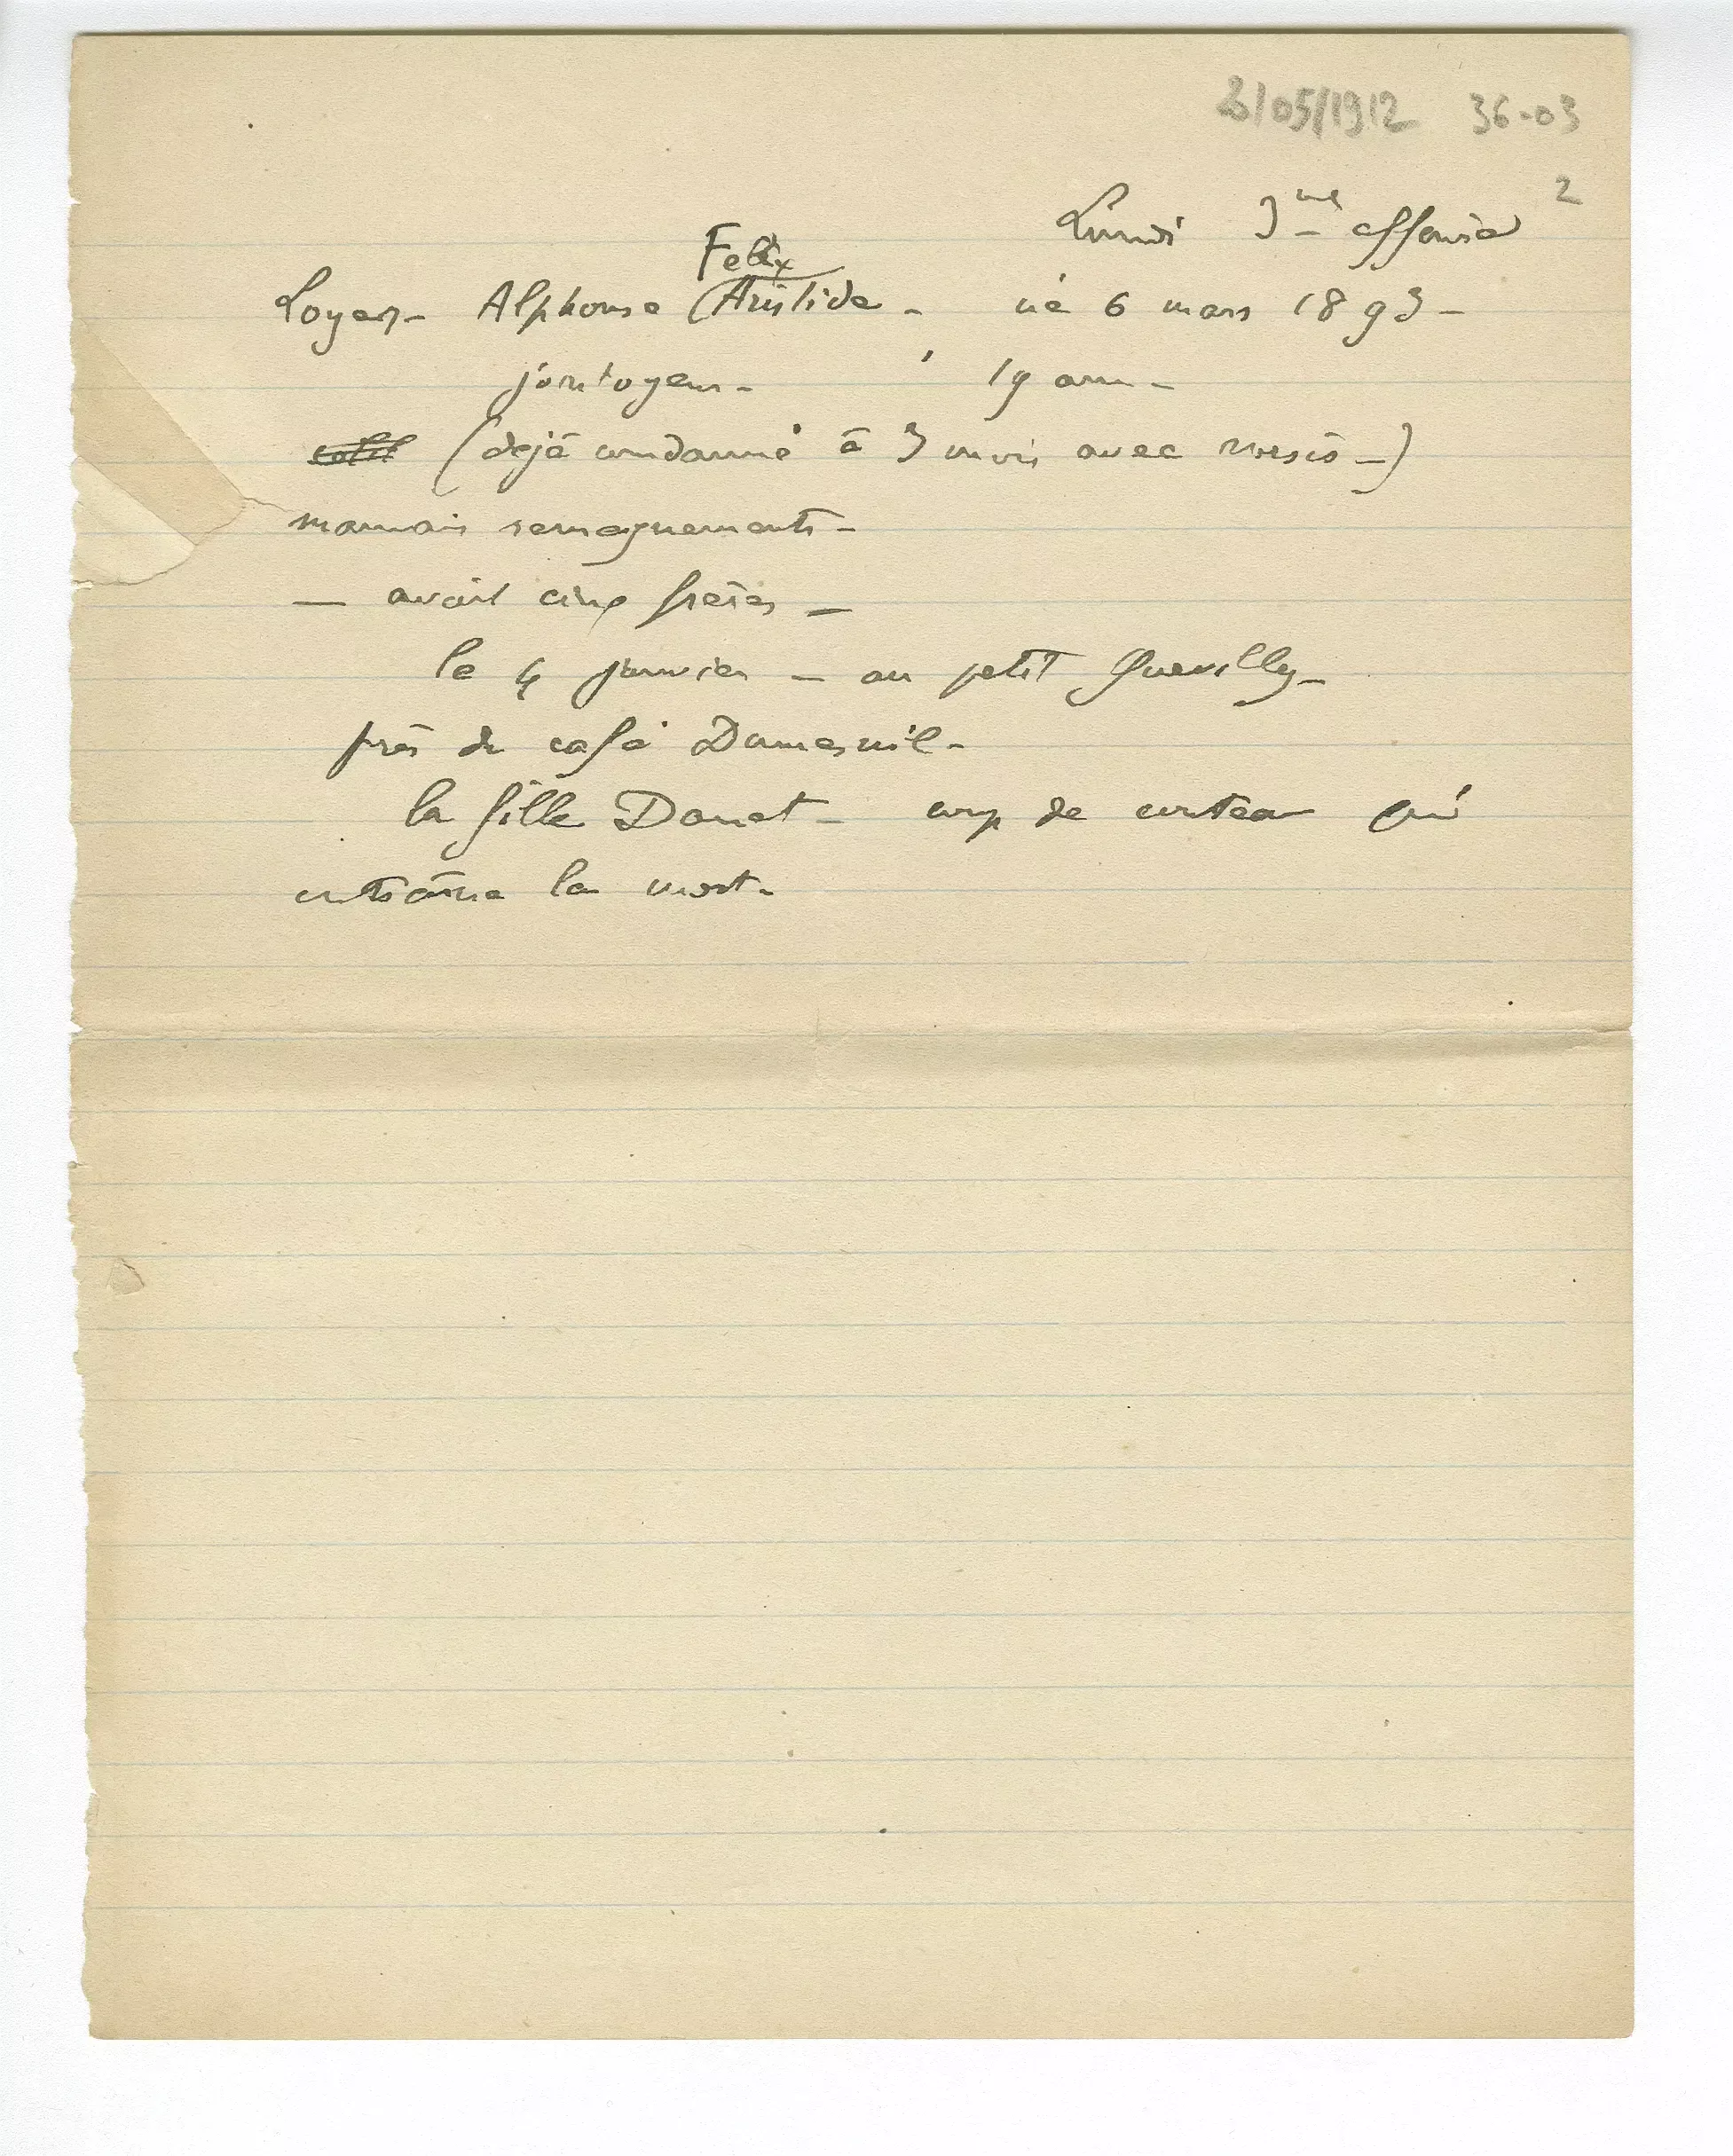 /05/1912 36-03
2
Lundi 3me affaire
Felix
Loyer - Alphonse (Aristide - né 6 mars 1893 -
jointoyeur - 19 ans -
(déjà condamné à 3 mois avec sursis -)
mauvais renseignements -
— avait cinq frères —
le 4 janvier — au petit Quevilly -
près du café Dumesnil -
la fille Douet - coup de couteau qui
entraîne la mort -